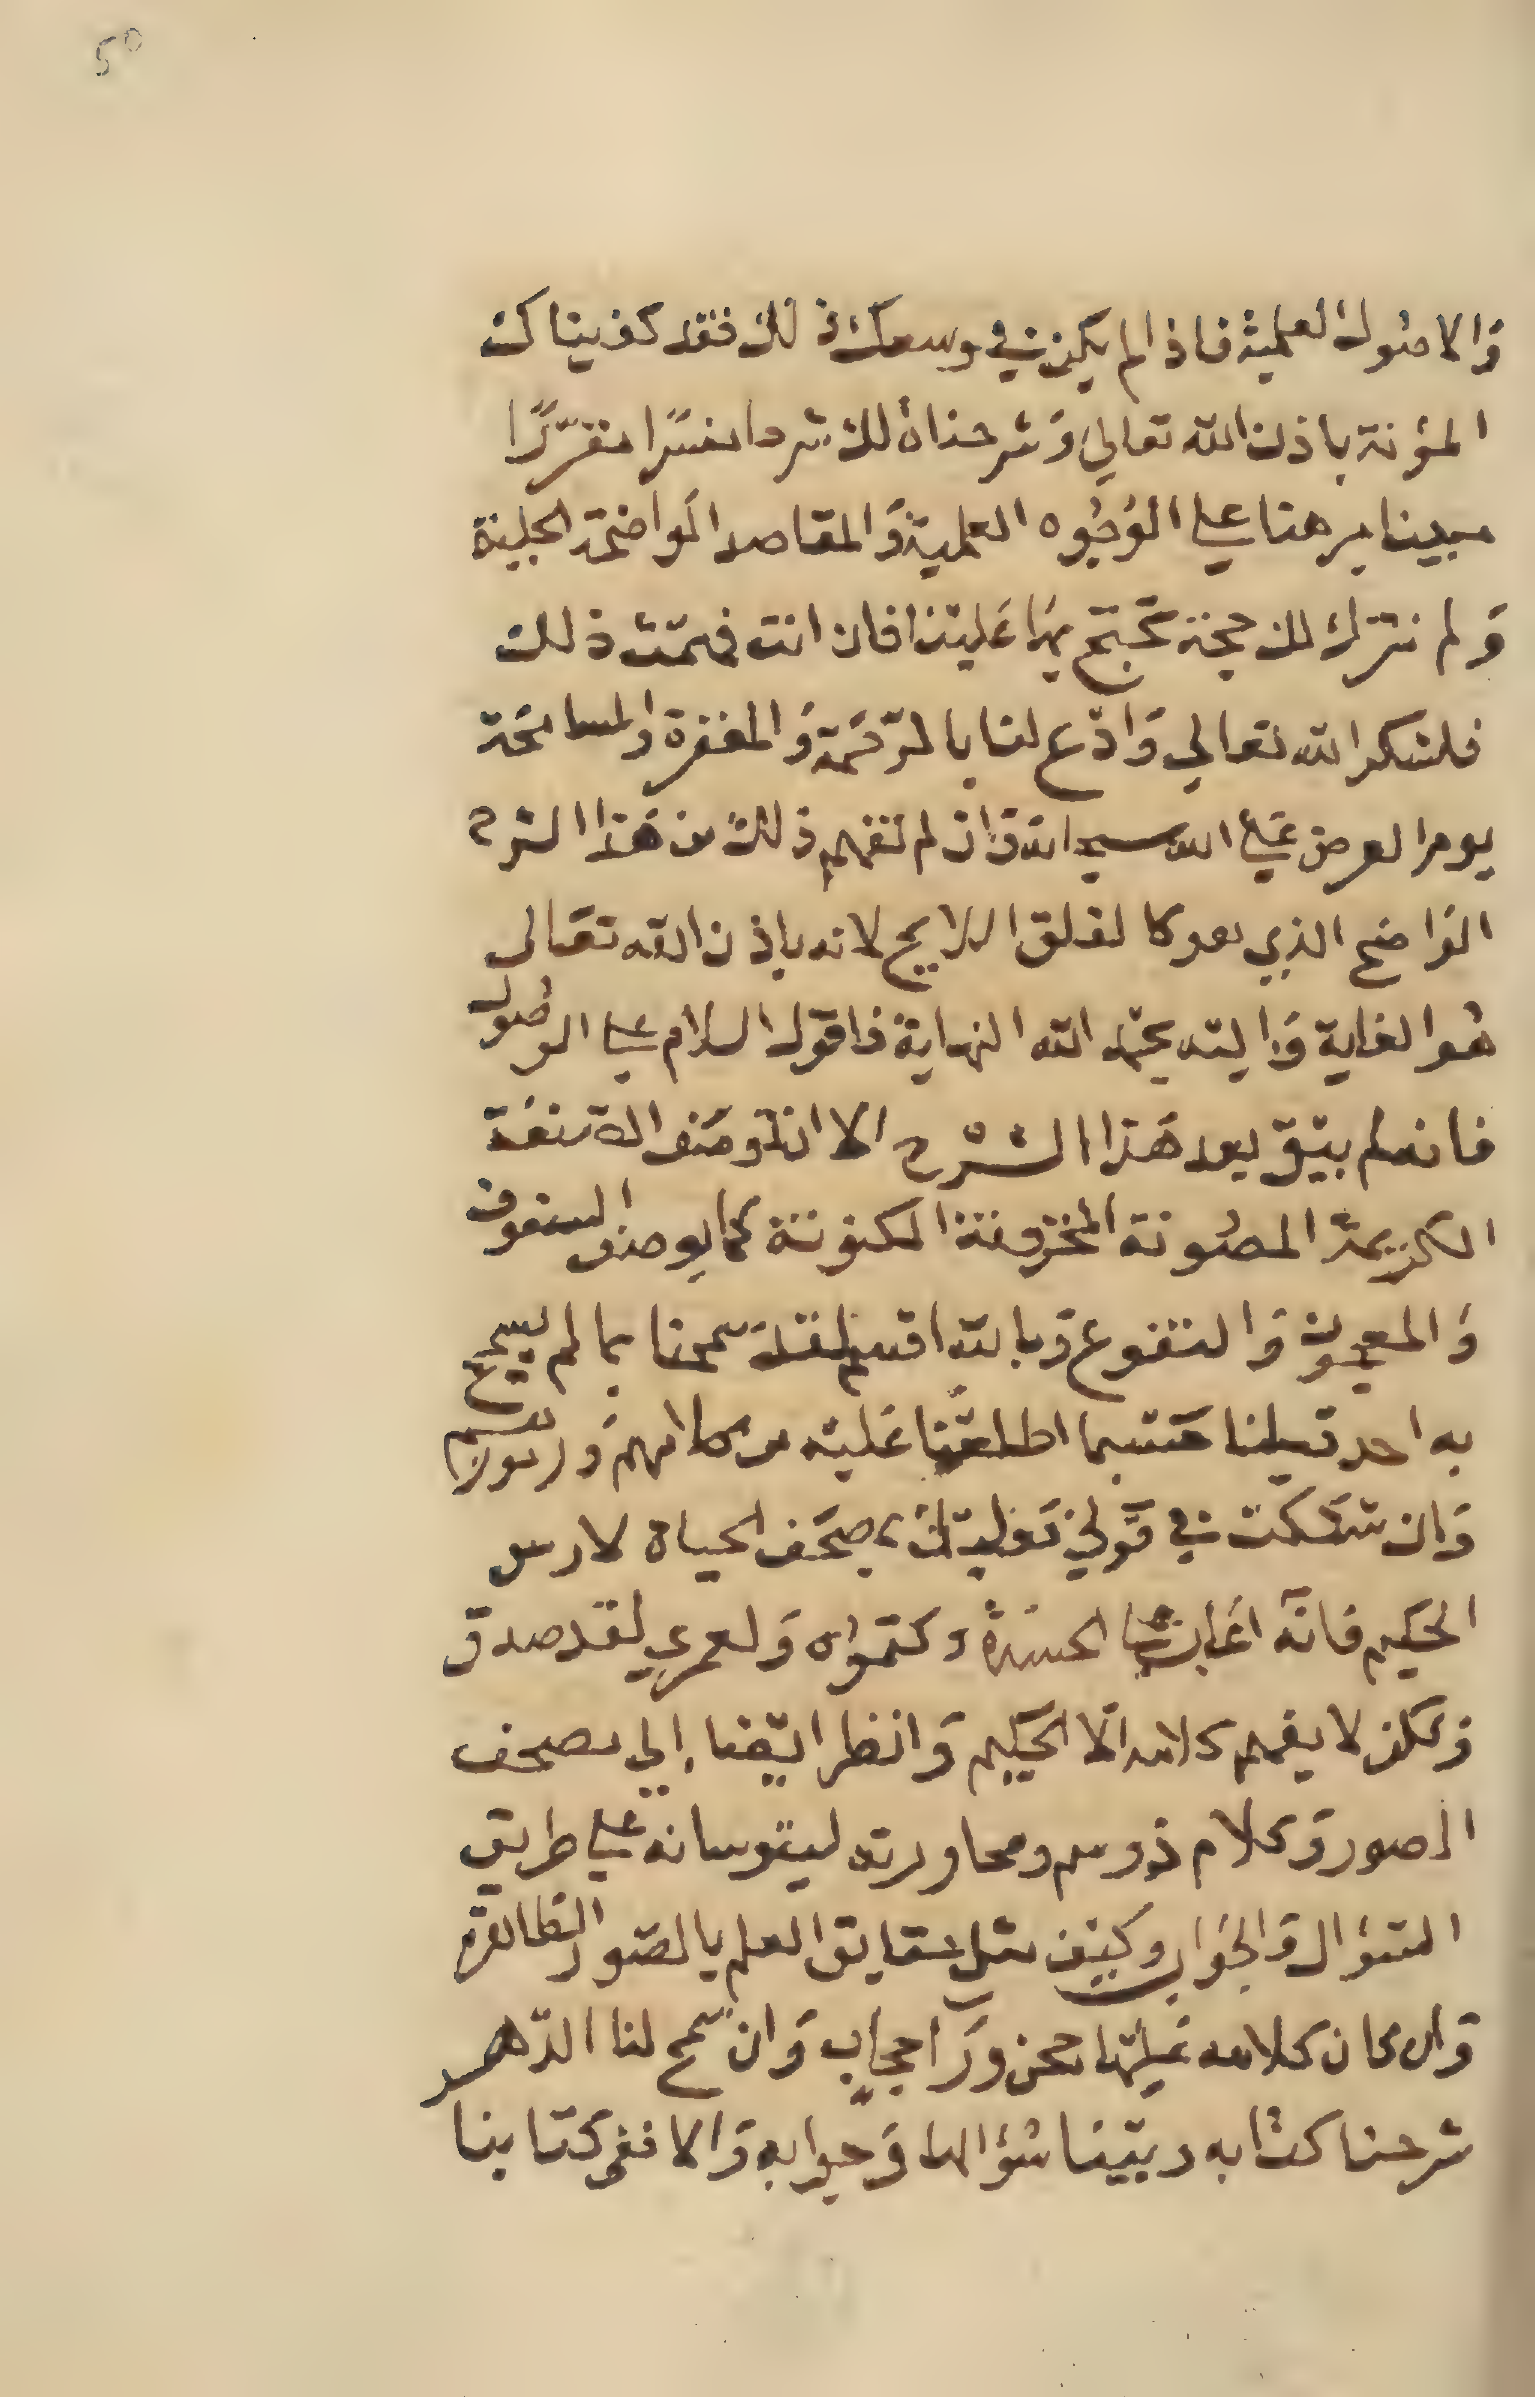 50
وَالاصُول العلميّة فاذا لم يكن في وسعك ذلك فقد كفيناك
المؤنة باذن الله تعالي وَشرحناهُ لك شرحا مفسّرًا مقرّرًا
مبينا مبرهنا علي الوُجُوه العلمية وَالمقاصد الوَاضحة الجلية
وَلم نترك لك حجة تحتج بهَا عَلينا فان انت فهمت ذلك
فلتشكر الله تعالي وَادع لنا بالرّحَمة وَالمغفرة والمسامحَة
يوم العرض عَلي الله سبحانه وَان لم تفهم ذلك من هَذا الشرح
الوَاضح الذي هو كالفلق اللايح لانه باذن الله تعَالى
هُو الغاية وَاليه بحمد الله النهاية فاقول السلام علي الوصُول
فانه لم يبق بعد هَذا الشرح الا ان توصَف الصنعَة
الكريمة المصُونة المخزونة المكنونة كما يوصف السفوف
وَالمعجون وَالنقوع وَبالله اقسم لقد سمحنا بما لم يسمح
به احد قبلنا حَسبما اطلعنا عَليه من كلامهم وَرموزهم
وَان شككت في قَولي فعَليك بمصحَف الحياة لارس
الحَكيم فانّه اعَابُوهَا الحسَدةُ وكتمُوه وَلعمري لقد صدق
وَلكن لا يفهم كلامه الّا الحَكيم وَانظر ايضا إلي مصحف
الصور وَكلام ذوسم ومحاورته ليتوسانه علي طريق
السؤال وَالجوَاب وكيف مثل حقايق العلم بالصّور الظاهرة
وَان كان كلامه عَليها من ورَآ حجاب وَان سمح لنا الدّهر
شرحنا كتابه وبيّنا سُؤاله وَجوابه وَالا ففي كتابنا